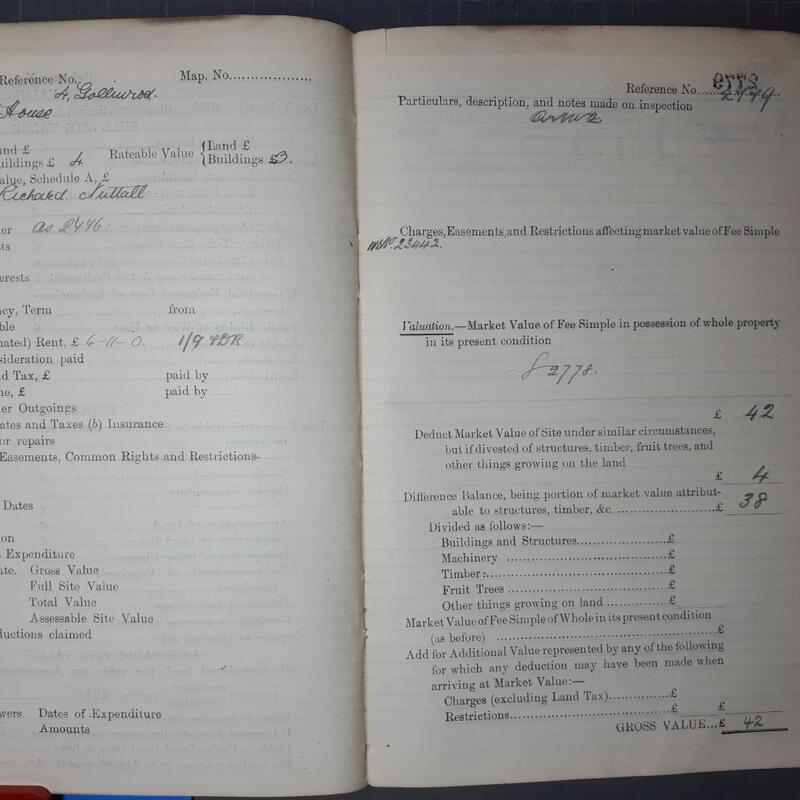 Reference No. Map. No...................
4, Gollinrod.
House
and £
uildings £ 4 Rateable Value {Land £
Buildings £3.
alue, Schedule A, £
Richard Nuttall
er as 2446
ts
erests
ncy, Term from
ble
nated) Rent, £ 6-11-0. 1/9
sideration paid
d Tax, £ paid by
ne, £ paid by
er Outgoings
ates and Taxes (b) Insurance
or repairs
Easements, Common Rights and Restrictions
Dates
ion
Expenditure
ate. Gross Value
Full Site Value
Total Value
Assessable Site Value
ductions claimed
wers. Dates of Expenditure
Amounts
Reference No.....2779
Particulars, description, and notes made on inspection
Charges, Easements, and Restrictions affecting market value of Fee Simple
23442.
Valuation.—Market Value of Fee Simple in possession of whole property
in its present condition
2778.
£ 42
Deduct Market Value of Site under similar circumstances,
but if divested of structures, timber, fruit trees, and
other things growing on the land
£ 4
Difference Balance, being portion of market value attribut-
able to structures, timber, &c. ......................£ 38
Divided as follows:—
Buildings and Structures....................£
Machinery ....................................£
Timber :.......................................£
Fruit Trees ..................................£
Other things growing on land ...............£
Market Value of Fee Simple of Whole in its present condition
(as before) .............................................£
Add for Additional Value represented by any of the following
for which any deduction may have been made when
arriving at Market Value:—
Charges (excluding Land Tax)..............£
Restrictions......................................£ £
GROSS VALUE...£ 42